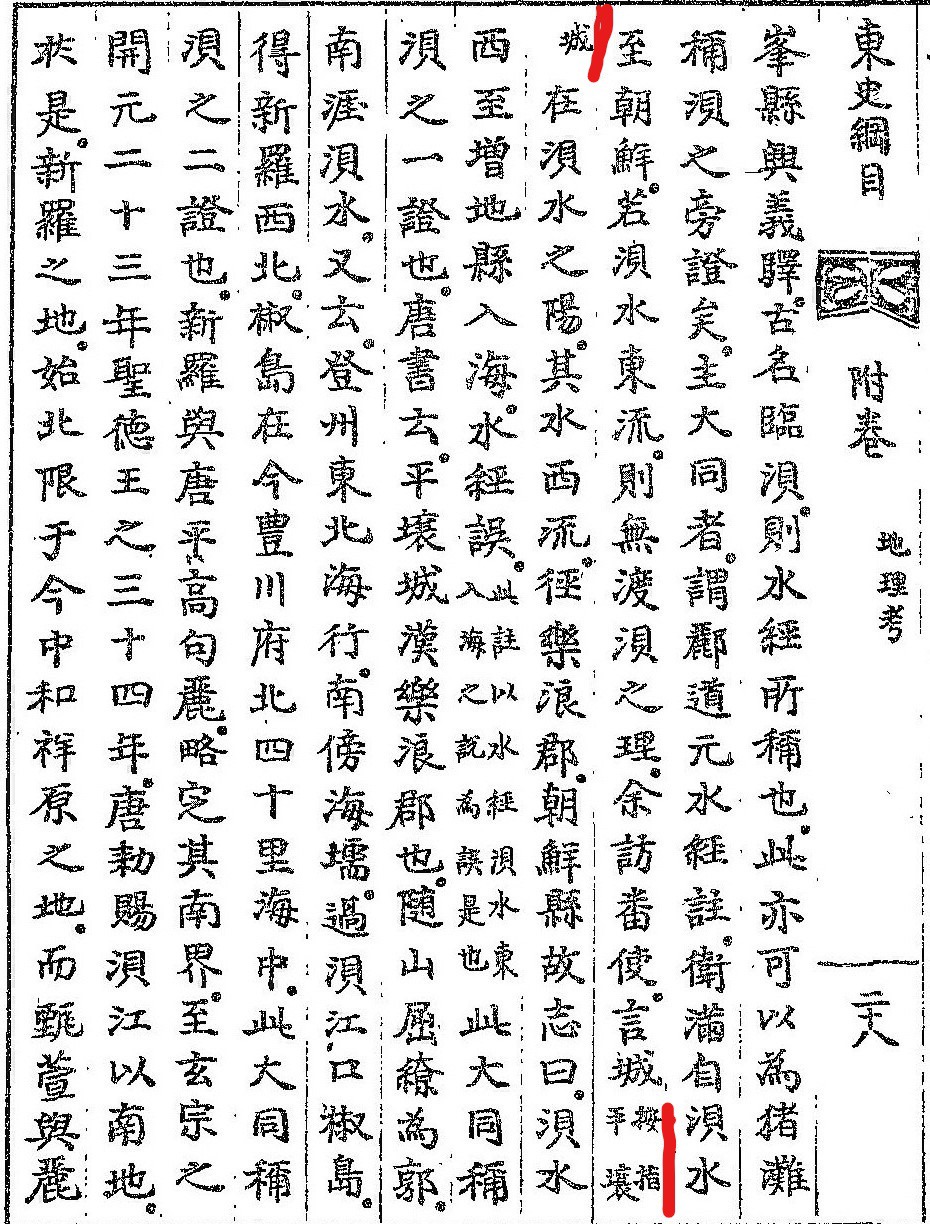 東史綱目 附卷 地理考 二十八
峯縣興義驛古名臨浿則水經所稱也此亦可以為猪灘
稱浿之旁證矣主大同者謂酈道元水經註衛滿自浿水
至朝鮮若浿水東流則無渡浿之理余訪番使言城按指平壤
城在浿水之陽其水西流徑樂浪郡朝鮮縣故志曰浿水
西至增地縣入海水經誤此註以水經浿水東入海之說為誤是也此大同稱
浿之一證也唐書云平壤城漢樂浪郡也隨山屈繚為郭
南涯浿水又云登州東北海行南傍海壖過浿江口椒島
得新羅西北椒島在今豊川府北四十里海中此大同稱
浿之二證也新羅與唐平高句麗略定其南界至玄宗之
開元二十三年聖德王之三十四年唐勅賜浿江以南地
於是新羅之地始北限于今中和祥原之地而甄萱與麗